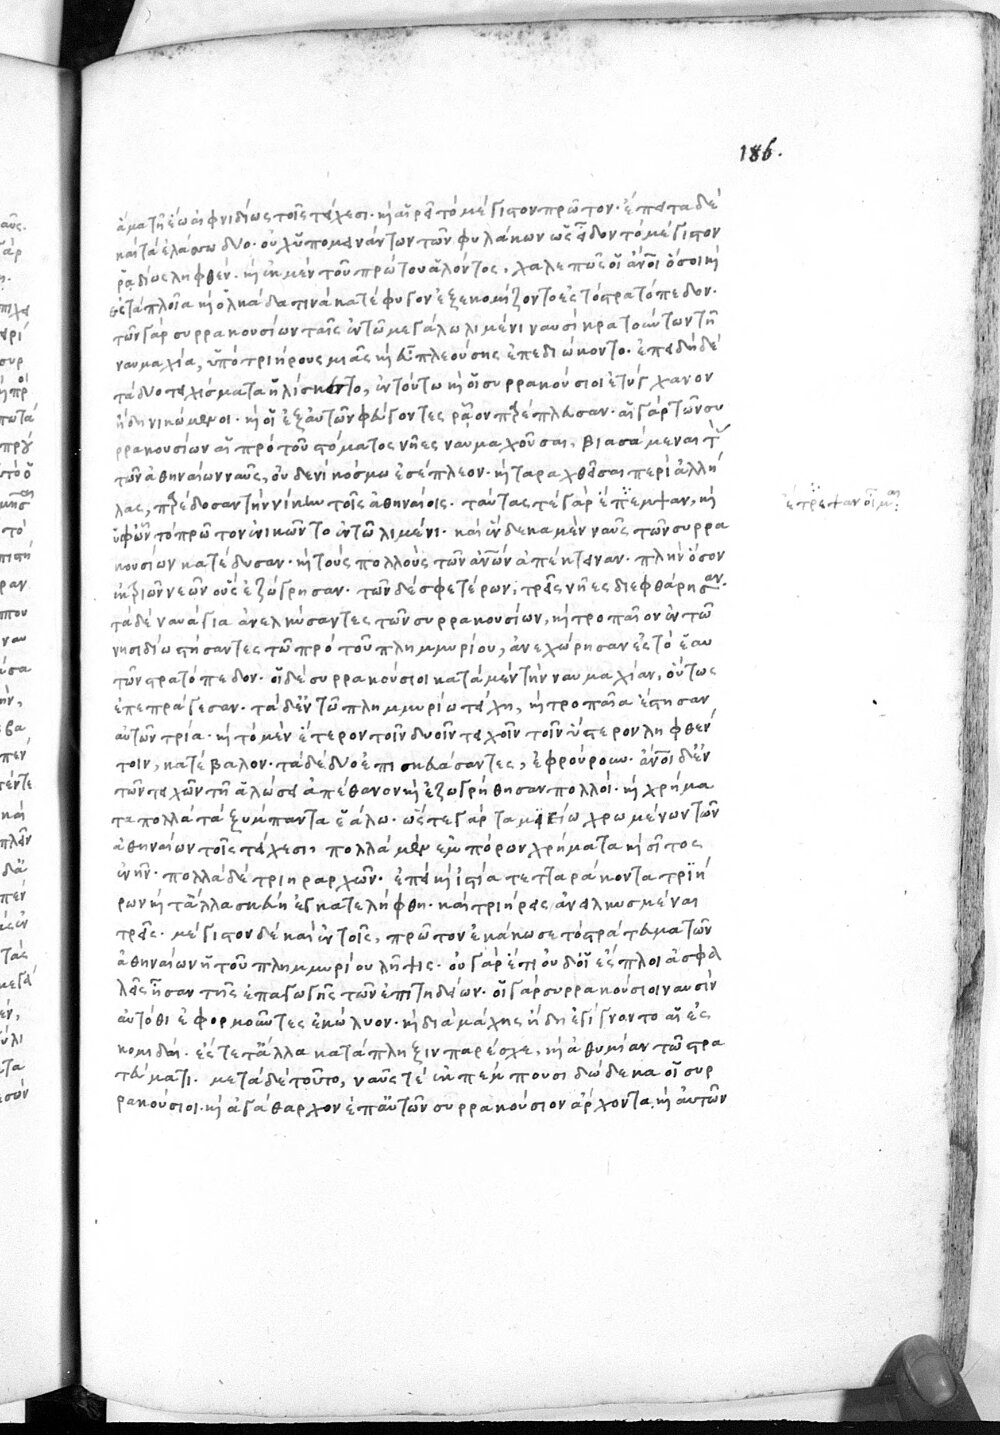 186.
ἅμα τῆ ἕω αἰφνιδίως τοῖς τείχεσι· καὶ αἱρεῖ τὸ μέγιστον πρῶτον· ἔπειτα δὲ
καὶ τὰ ἐλάσσω δύο· οὐχ ὑπομεινάντων τῶν φυλάκων ὡς εἶδον τὸ μέγιστον
ῥᾳδίως ληφθέν· καὶ ἐκ μὲν τοῦ πρώτου ἁλόντος, χαλεπῶς οἱ ἄνοι ὅσοι καὶ
ἐς τὰ πλοῖα καὶ ὁλκάδα τινὰ κατέφυγον ἐξεκομίζοντο ἐς τὸ στρατόπεδον·
τῶν γὰρ συρρακουσίων ταῖς ἐν τῶ μεγάλω λιμένι ναυσὶ κρατούντων τῆ
ναυμαχία, ὑπὸ τριήρους μιᾶς καὶ εὖ πλεούσης ἐπεδιώκοντο· ἐπειδὴ δὲ
τὰ δύο τειχίσματα ἡλίσκετο, ἐν τούτω καὶ οἱ συρρακούσιοι ἐτύγχανον
ἤδη νικώμενοι· καὶ οἱ ἐξ αὐτῶν φεύγοντες ῥᾷον παρέπλευσαν· αἱ γὰρ τῶν συ
ρρακουσίων αἱ πρὸ τοῦ στόματος νῆες ναυμαχοῦσαι, βιασάμεναι τὰς
τῶν ἀθηναίων ναῦς, οὐδενὶ κόσμω ἐσέπλεον· καὶ ταραχθεῖσαι περὶ ἀλλή
λας, παρέδοσαν τὴν νίκην τοῖς ἀθηναίοις· ταύτας τε γὰρ ἔπεμψαν, καὶ
ἔτρεψαν οἶμαι:
ὑφ' ὧν τὸ πρῶτον ἐνικῶντο ἐν τῶ λιμένι· καὶ ἕνδεκα μὲν ναῦς τῶν συρρα
κουσίων κατέδυσαν· καὶ τοὺς πολλοὺς τῶν ἀνων ἀπέκτειναν· πλὴν ὅσον
ἐκ τριῶν νεῶν οὓς ἐζώγρησαν· τῶν δὲ σφετέρων, τρεῖς νῆες διεφθάρησαν·
τὰ δὲ ναυάγια ἀνελκύσαντες τῶν συρρακουσίων, καὶ τροπαῖον ἐν τῶ
νησιδίω στήσαντες τῶ πρὸ τοῦ πλημμυρίου, ἀνεχώρησαν ἐς τὸ ἑαυ
τῶν στρατόπεδον· οἱ δὲ συρρακούσιοι κατὰ μὲν τὴν ναυμαχίαν, οὕτως
ἐπεπράγεσαν· τὰ δ' ἐν τῶ πλημμυρίω τείχη, καὶ τροπαῖα ἔστησαν
αὐτῶν τρία· καὶ τὸ μὲν ἕτερον τοῖν δυοῖν τειχοῖν τοῖν ὕστερον ληφθέν
τοιν, κατέβαλον· τὰ δὲ δύο ἐπισκευάσαντες, ἐφρούρουν· ἄνοι δ' ἐν
τῶν τειχῶν τῆ ἁλώσει ἀπέθανον καὶ ἐζωγρήθησαν πολλοί· καὶ χρήμα
τα πολλὰ τὰ ξύμπαντα ἑάλω· ὥστε γὰρ ταμιείω χρωμένων τῶν
ἀθηναίων τοῖς τείχεσι, πολλὰ μὲν ἐμπόρων χρήματα καὶ σῖτος
ἐνῆν· πολλὰ δὲ τριηραρχῶν· ἐπεὶ καὶ ἱστία τετταράκοντα τριή
ρων καὶ τἆλλα σκεύη ἐγκατελήφθη· καὶ τριήρεις ἀνειλκυσμέναι
τρεῖς· μέγιστον δὲ καὶ ἐν τοῖς, πρῶτον ἐκάκωσε τὸ στράτευμα τῶν
ἀθηναίων ἡ τοῦ πλημμυρίου λῆψις· οὐ γὰρ ἔτι οὐδ' οἱ ἔσπλοι ἀσφα
λεῖς ἦσαν τῆς ἐπαγωγῆς τῶν ἐπιτηδείων· οἱ γὰρ συρρακούσιοι ναυσὶν
αὐτόθι ἐφορμοῦντες ἐκώλυον· καὶ διὰ μάχης ἤδη ἐγίγνοντο αἱ ἐς
κομιδαί· ἔς τε τἆλλα κατάπληξιν παρέσχε, καὶ ἀθυμίαν τῶ στρα
τεύματι· μετὰ δὲ τοῦτο, ναῦς τὲ ἐκπέμπουσι δώδεκα οἱ συρ
ρακούσιοι· καὶ ἀγάθαρχον ἐπ' αὐτῶν συρρακούσιον ἄρχοντα· καὶ αὐτῶν